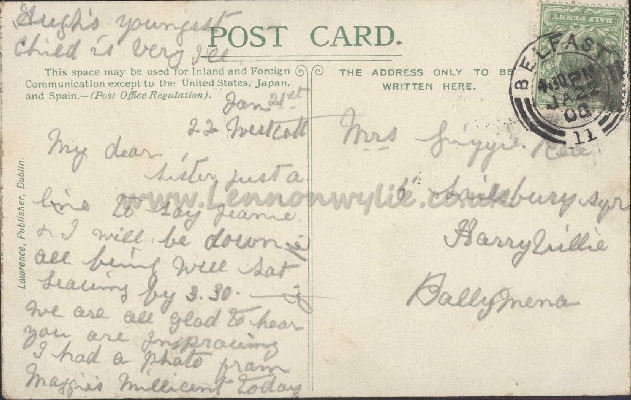 Hugh's youngest
child is very ill
POST CARD.
This space may be used for Inland and Foreign
Communication except to the United States, Japan,
and Spain.—(Post Office Regulation).
THE ADDRESS ONLY TO BE
WRITTEN HERE.
HALF PENNY
BELFAST
JA
11
Jan 21st
22 Westcott
My dear
Sister just a
line to say Jeannie
& I will be down
all being well Sat
leaving by 3.30.
we are all glad to hear
you are improving
I had a photo from
Maggie's Millicent today
Mrs
Salisbury sqr
Harryville
Ballymena
Lawrence, Publisher, Dublin.
www.Lennonwylie.co.uk